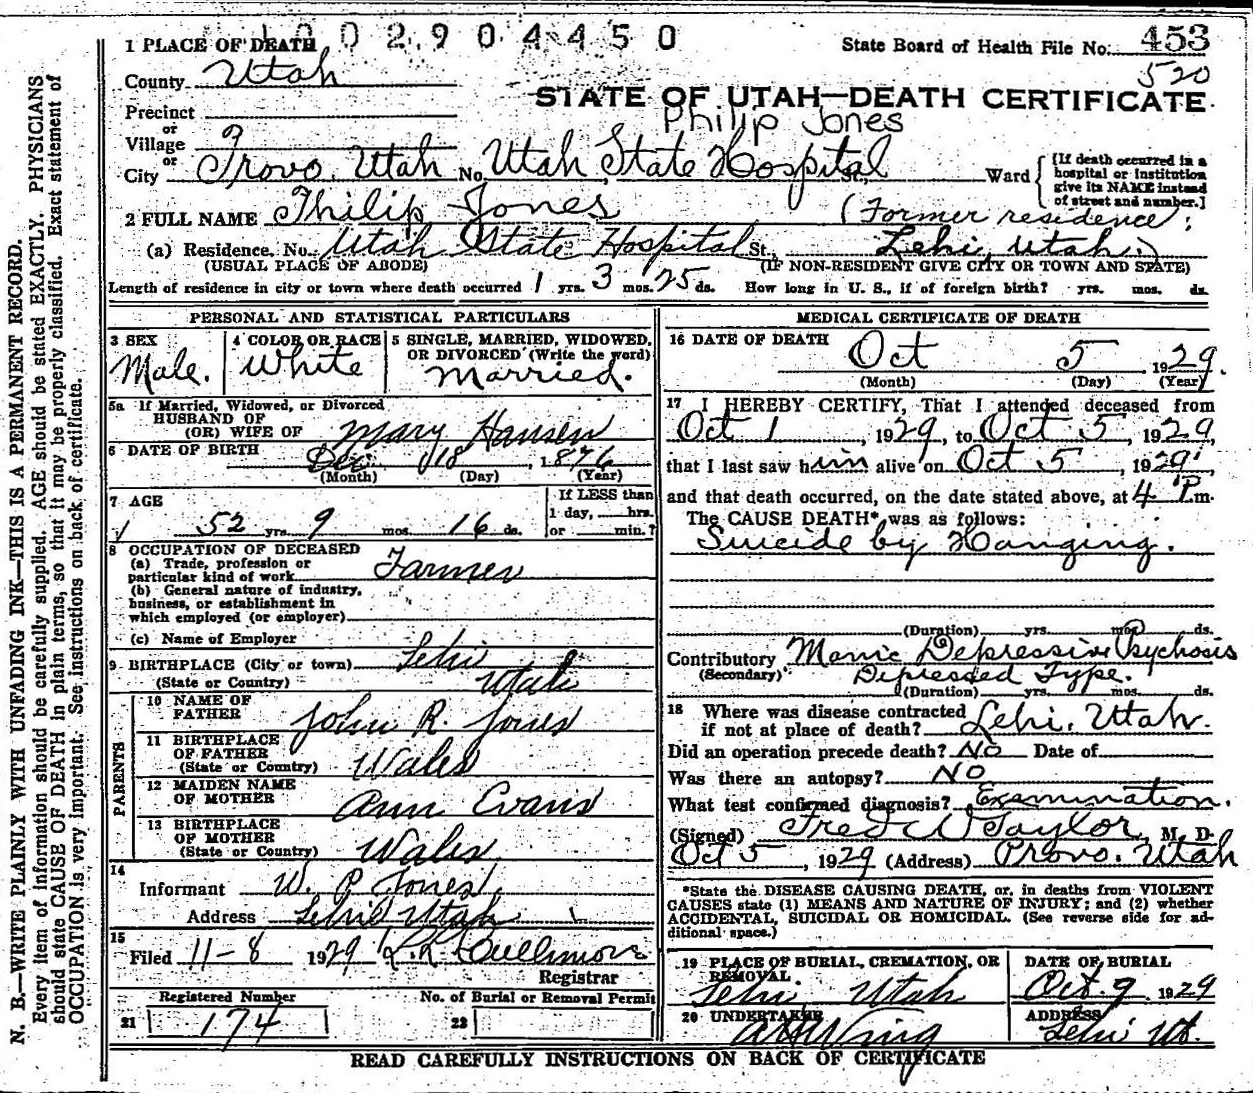 1 0 0 2 9 0 4 4 5 0
State Board of Health File No. 453
520
STATE OF UTAH—DEATH CERTIFICATE
Philip Jones
1 PLACE OF DEATH
County Utah
Precinct
or
Village
or
City Provo, Utah No. Utah State Hospital St., Ward
[If death occurred in a
hospital or institution
give its NAME instead
of street and number.]
2 FULL NAME Philip Jones (Former residence;
(a) Residence. No. Utah State Hospital St., Lehi, Utah.)
(USUAL PLACE OF ABODE) (IF NON-RESIDENT GIVE CITY OR TOWN AND STATE)
Length of residence in city or town where death occurred 1 yrs. 3 mos. 25 ds. How long in U. S., if of foreign birth? yrs. mos. ds.
PERSONAL AND STATISTICAL PARTICULARS
3 SEX
Male.
4 COLOR OR RACE
White
5 SINGLE, MARRIED, WIDOWED,
OR DIVORCED (Write the word)
Married.
5a If Married, Widowed, or Divorced
HUSBAND OF
(OR) WIFE OF Mary Hansen
6 DATE OF BIRTH Dec 18, 1876
(Month) (Day) (Year)
7 AGE
52 yrs. 9 mos. 16 ds.
If LESS than
1 day, hrs.
or min.?
8 OCCUPATION OF DECEASED
(a) Trade, profession or
particular kind of work Farmer
(b) General nature of industry,
business, or establishment in
which employed (or employer)
(c) Name of Employer
9 BIRTHPLACE (City or town) Lehi
(State or Country) Utah
PARENTS
10 NAME OF
FATHER John R. Jones
11 BIRTHPLACE
OF FATHER
(State or Country) Wales
12 MAIDEN NAME
OF MOTHER Ann Evans
13 BIRTHPLACE
OF MOTHER
(State or Country) Wales
14
Informant W. P. Jones,
Address Lehi Utah
15
Filed 11-8 1929
Registrar
Registered Number
21 174
No. of Burial or Removal Permit
22
MEDICAL CERTIFICATE OF DEATH
16 DATE OF DEATH Oct 5 1929.
(Month) (Day) (Year)
17 I HEREBY CERTIFY, That I attended deceased from
Oct 1, 1929, to Oct 5, 1929,
that I last saw him alive on Oct 5, 1929,
and that death occurred, on the date stated above, at 4 P m.
The CAUSE DEATH* was as follows:
Suicide by Hanging.
(Duration) yrs. mos. ds.
Contributory Manic Depressive Psychosis
(Secondary) Depressed Type.
(Duration) yrs. mos. ds.
18 Where was disease contracted
if not at place of death? Lehi, Utah.
Did an operation precede death? No Date of
Was there an autopsy? No
What test confirmed diagnosis? Examination.
(Signed) Fred W Taylor, M. D.
Oct 5, 1929 (Address) Provo, Utah
*State the DISEASE CAUSING DEATH, or, in deaths from VIOLENT
CAUSES state (1) MEANS AND NATURE OF INJURY; and (2) whether
ACCIDENTAL, SUICIDAL OR HOMICIDAL. (See reverse side for ad-
ditional space.)
19 PLACE OF BURIAL, CREMATION, OR
REMOVAL
Lehi Utah
DATE OF BURIAL
Oct. 9 1929
20 UNDERTAKER
Wing
ADDRESS
Lehi Ut.
READ CAREFULLY INSTRUCTIONS ON BACK OF CERTIFICATE
N. B.—WRITE PLAINLY WITH UNFADING INK—THIS IS A PERMANENT RECORD.
Every item of information should be carefully supplied. AGE should be stated EXACTLY. PHYSICIANS
should state CAUSE OF DEATH in plain terms, so that it may be properly classified. Exact statement of
OCCUPATION is very important. See instructions on back of certificate.